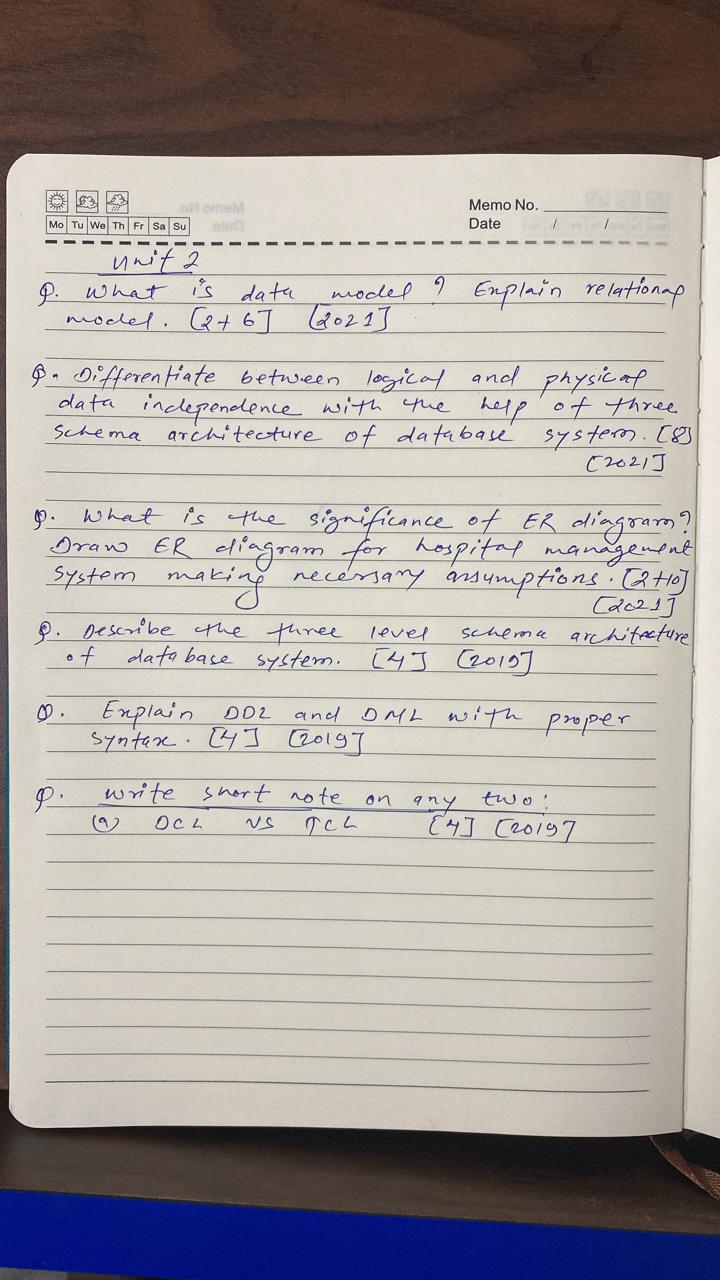 Memo No.
Mo Tu We Th Fr Sa Su
Date / /
Unit 2
Q. What is data model? Explain relational
model. [2+6] [2021]
Q. Differentiate between logical and physical
data independence with the help of three
schema architecture of database system. [8]
[2021]
Q. What is the significance of ER diagram?
Draw ER diagram for hospital management
system making necessary assumptions. [2+10]
[2021]
Q. Describe the three level schema architecture
of database system. [4] [2019]
Q. Explain DDL and DML with proper
syntax. [4] [2019]
Q. Write short note on any two:
(a) DCL VS TCL [4] [2019]